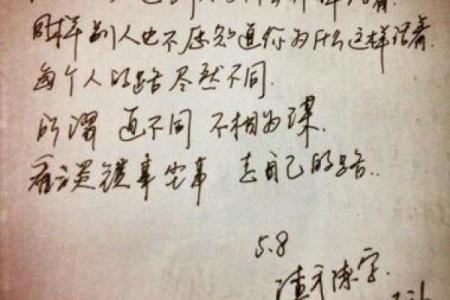 同样别人也不愿知道你为什么这样活着.
每个人的路尽然不同.
所谓 道不同 不相为谋.
看淡锁事空事 走自己的路..
5.8